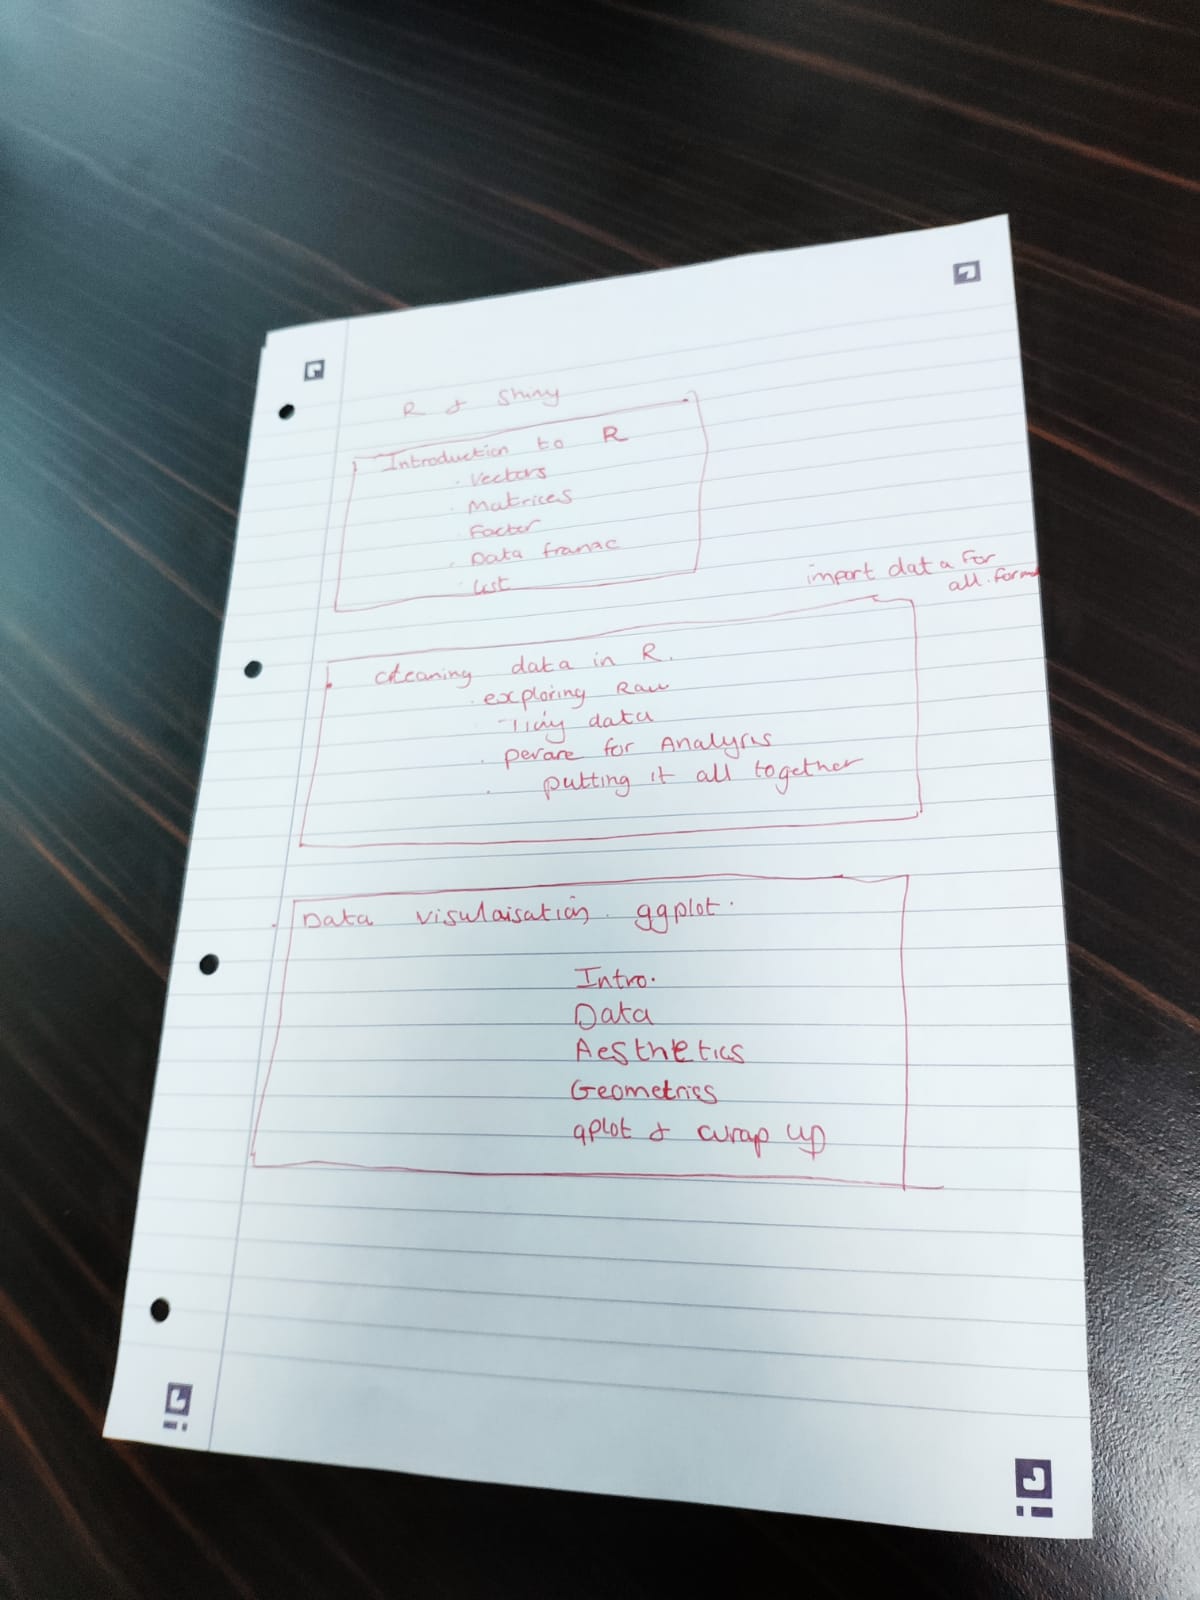 R & Shiny
Introduction to R
. Vectors
. Matrices
. Factor
. Data franac
. List
import data for
all . form
cleaning data in R.
. exploring Raw
Tidy data
. perare for Analysis
. putting it all together
Data visulaisation . ggplot .
Intro.
Data
Aesthetics
Geometrics
qplot & wrap up